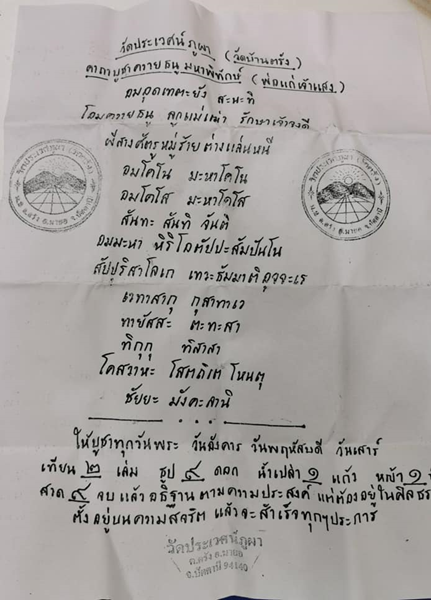 วัดประเวศน์ภูผา (วัดบ้านตรัง)
คาถาบูชาควายธนูมหาพิทักษ์ (พ่อแก่เจ้าแสง)
อมอุดเทตะยัง สะนะทิ
โอมควายธนู ลูกแม่เฒ่า รักษาเจ้าจงดี
ผีสางศัตรูหมู่ร้ายต่างแล่นหนี
อมโคโน มะหาโคโน
อมโคโส มะหาโคโส
สันทะ สันทิ จันติ
อมมะหา หิริโอตัปปะสัมปันโน
สัปปุริสาโลเก เทวะธัมมาติอุจจะเร
เวทาสากุ กุสาทาเว
ทายัสสะ ตะทะสา
ทิกุกุ ทิสาสา
โคสวาหะ โสตถิเต โหนตุ
ชัยยะ มังคะลานิ
ให้บูชาทุกวันพระ วันอังคาร วันพฤหัสบดี วันเสาร์
เทียน ๒ เล่ม ธูป ๙ ดอก น้ำเปล่า ๑ แก้ว หญ้า ๑
สวด ๙ จบ แล้วอธิฐานตามความประสงค์ แต่ต้องอยู่ในศีลธร
ตั้งอยู่บนความสุจริต แล้วจะสำเร็จทุกๆประการ
วัดประเวศน์ภูผา
ต.ตรัง อ.มายอ
จ.ปัตตานี 94140